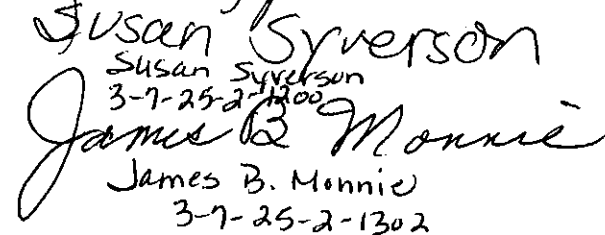 Susan Syverson
Susan Syverson
3-7-25-2-1200
James B Monnie
James B. Monnie
3-7-25-2-1302